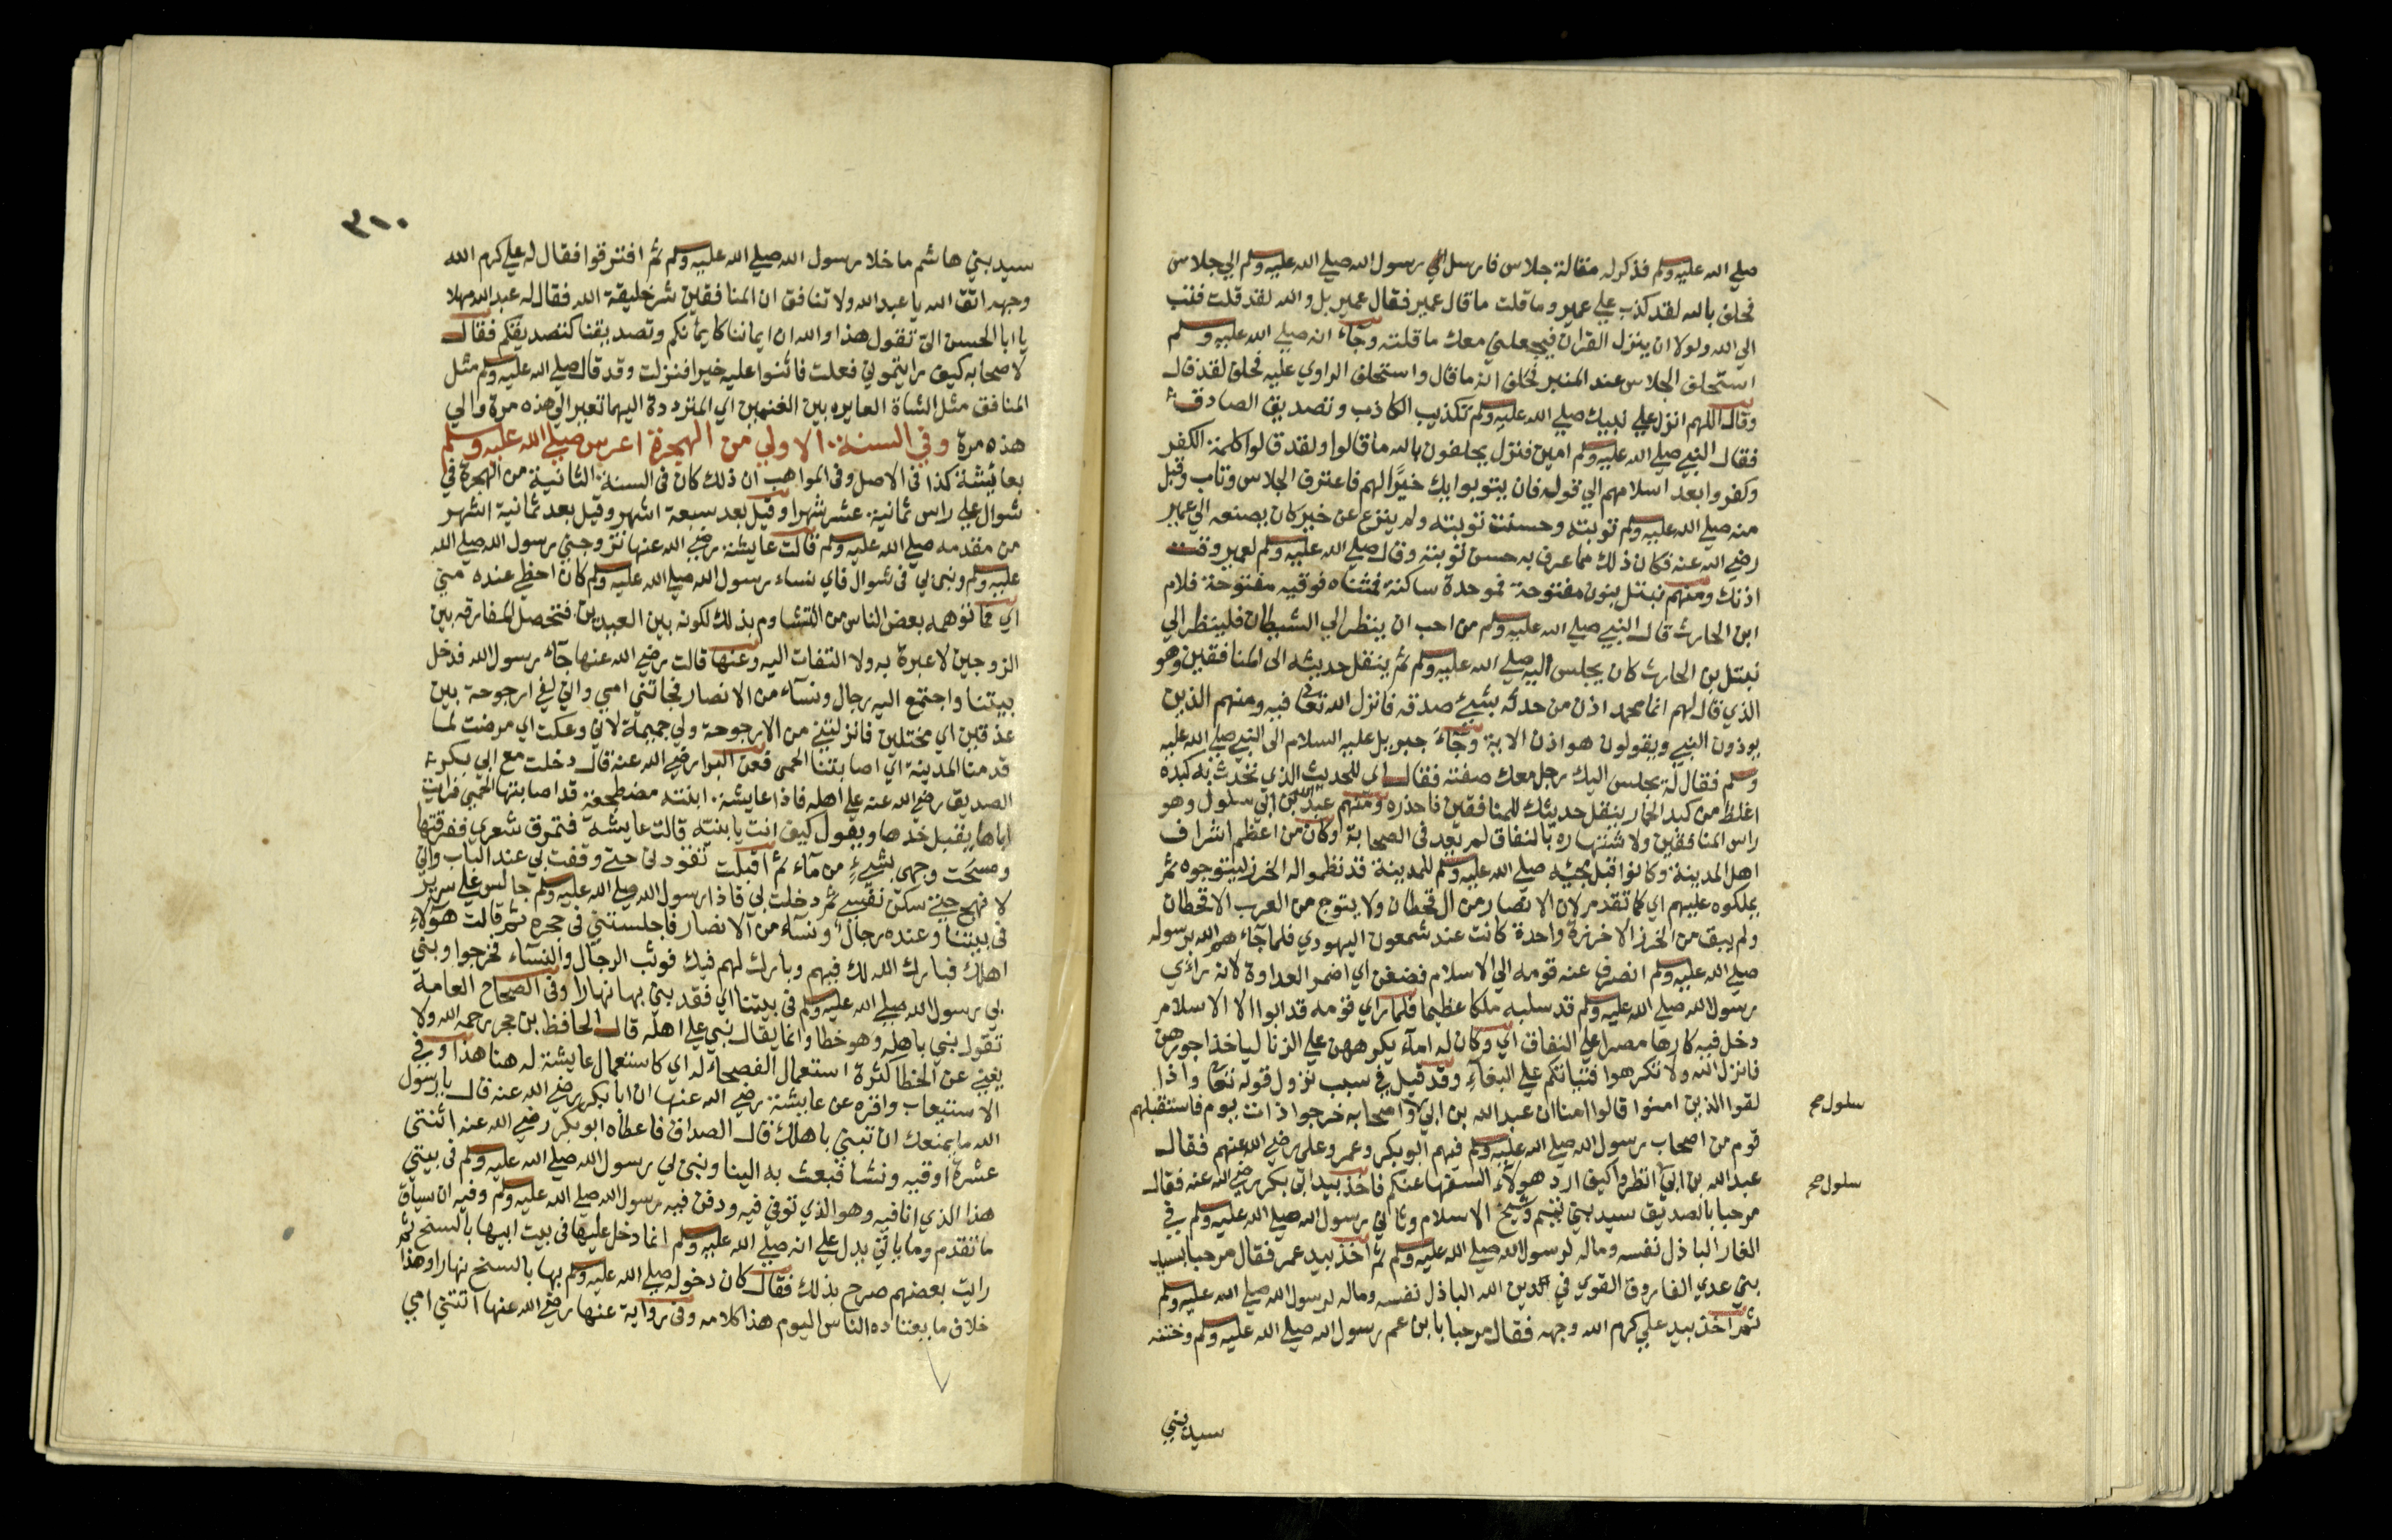 صلي الله عليه وسلم فذكر له مقالة جلاس فارسل الي رسول الله صلي الله عليه وسلم الي جلاس
فحلف بالله لقد كذب علي عمير وما قلت ما قال عمير فقال عمير بل والله لقد قلت فتب
الي الله ولولا ان ينزل القران فيجعلني معك ما قلته وجاء انه صلي الله عليه وسلم
استحلف الجلاس عند المنبر فحلف انه ما قال واستحلف الراوي عليه فحلف لقد قال
وقال اللهم انزل علي نبيك صلي الله عليه وسلم تكذيب الكاذب وتصديق الصادق
فقال النبي صلي الله عليه وسلم امين فنزل يحلفون بالله ما قالوا ولقد قالوا كلمة الكفر
وكفروا بعد اسلامهم الي قوله فان يتوبوا يك خيرًا لهم فاعترف الجلاس وتاب وقبل
منه صلي الله عليه وسلم توبته وحسنت توبته ولم ينزع عن خير كان يصنعه الي عمير
رضي الله عنه فكان ذلك مما عرف به حسن توبته وقال صلي الله عليه وسلم لعمير وفت
اذنك ومنهم نبتل بنون مفتوحة فموحدة ساكنة فمثناه فوقيه مفتوحة فلام
ابن الحارث قال النبي صلي الله عليه وسلم من احب ان ينظر الي الشيطان فلينظر الي
نبتل بن الحارث كان يجلس اليه صلي الله عليه وسلم ثم ينقل حديثه الى المنافقين وهو
الذي قال لهم انما محمد اذن من حدثه بشيئ صدقه فانزل الله تعا فيه ومنهم الذين
يوذون النبي ويقولون هو اذن الاية وجاء جبريل عليه السلام الى النبي صلي الله عليه
وسلم فقال له يجلس اليك رجل معك صفته فقال اي للحديث الذي تحدث به كبده
اغلظ من كبد الحمار ينقل حديثك للمنافقين فاحذره ومنهم عبد الله بن ابي سلول وهو
راس المنافقين ولاشتهاره بالنفاق لم يعد في الصحابة وكان من اعظم اشراف
اهل المدينة وكانوا قبل مجيئه صلي الله عليه وسلم للمدينة قد نظموا له الخرز ليتوجوه ثم
يملكوه عليهم اي كما تقدم لان الانصار من ال قحطان ولا يتوج من العرب الا قحطان
ولم يبق من الخرز الا خرزة واحدة كانت عند شمعون اليهودي فلما جاء هم الله برسوله
صلي الله عليه وسلم انصرف عنه قومه الي الاسلام فضغن اي اضمر العداوة لانه راءي
رسول الله صلي الله عليه وسلم قد سلبه ملكا عظيما فلما راي قومه قد ابوا الا الاسلام
دخل فيه كارها مصرا علي النفاق اي وكان له اماء يكرههن علي الزنا لياخذ اجورهن
فانزل الله ولا تكرهوا فتياتكم علي البغاء وقد قيل في سبب نزول قوله تعا واذا
لقوا الذين امنوا قالوا امنا ان عبد الله بن ابي واصحابه خرجوا ذات يوم فاستقبلهم
سلول صح
قوم من اصحاب رسول الله صلي الله عليه وسلم فيهم ابو بكر وعمر وعلي رضي الله عنهم فقال
عبد الله بن ابي انظروا كيف ارد هولاء السفها عنكم فاخذ بيد ابي بكر رضي الله عنه فقال
سلول صح
مرحبا بالصديق سيد بني تيم وشيخ الاسلام وثاني رسول الله صلي الله عليه وسلم في
الغار الباذل نفسه وماله لرسول الله صلي الله عليه وسلم ثم اخذ بيد عمر فقال مرحبا بسيد
بني عدي الفاروق القوي في الدين الله الباذل نفسه وماله لرسول الله صلي الله عليه وسلم
ثم اخذ بيد علي كرم الله وجهه فقال مرحبا بابن عم رسول الله صلي الله عليه وسلم وختنه
سيد بني
٣١٠
سيد بني هاشم ما خلا رسول الله صلي الله عليه وسلم ثم افترقوا فقال له علي كرم الله
وجهه اتق الله يا عبد الله ولا تنافق ان المنافقين شر خليقة الله فقال له عبد الله مهلا
يا ابا الحسن الي تقول هذا والله ان ايماننا كايمانكم وتصديقنا كتصديقكم فقال
لاصحابه كيف رايتموني فعلت فاثنوا عليه خيرا فنزلت وقد قال صلي الله عليه وسلم مثل
المنافق مثل الشاة العايره بين الغنمين اي المترددة اليهما تعير الي هذه مرة والي
هذه مرة وفي السنة الاولي من الهجرة اعرس صلي الله عليه وسلم
بعائيشة كذا في الاصل وفي المواهب ان ذلك كان في السنة الثانية من الهجرة في
شوال علي راس ثمانية عشر شهرا وقيل بعد سبعة اشهر وقيل بعد ثمانية اشهر
من مقدمه صلي الله عليه وسلم قالت عايشة رضي الله عنها تزوجني رسول الله صلي الله
عليه وسلم وبني لي في شوال فاي نساء رسول الله صلي الله عليه وسلم كان احظي عنده مني
اي فما توهمه بعض الناس من التشاوم بذلك لكونه بين العيدين فتحصل المفارقه بين
الزوجين لا عبرة به ولا التفات اليه وعنها قالت رضي الله عنها جاء رسول الله فدخل
بيتنا واجتمع اليه رجال ونسآء من الانصار فجاتني امي واني لفي ارجوحة بين
عذقين اي مختلين فانزلتني من الارجوحة ولي جميمة لاني وعكت اي مرضت لما
قدمنا المدينة اي اصابتنا الحمى فعن البرا رضي الله عنه قال دخلت مع ابي بكر
الصديق رضي الله عنه علي اهله فاذا عايشة ابنته مضطجعة قد اصابتها الحمى فرايت
اباها يقبل خدها ويقول كيف انت يا بنية قالت عايشة فتمرق شعري ففرقتها
ومسحت وجهي بشيئ من مآء ثم اقبلت تقودني حتي وقفت بي عند الباب واني
لانهج حتي سكن نفسي ثم دخلت بي فاذا رسول الله صلي الله عليه وسلم جالس علي سرير
في بيتنا وعنده رجال ونسآء من الانصار فاجلستني في حجره ثم قالت هولاء
اهلك فبارك الله لك فيهم وبارك لهم فيك فوثب الرجال والنسآء فخرجوا وبني
بي رسول الله صلي الله عليه وسلم في بيتنا اي فقد بني بها نهارا وفي الصحاح العامة
تقول بني باهله وهو خطا وانما يقال بني علي اهله قال الحافظ بن حجر رحمه الله ولا
يغني عن الخطا كثرة استعمال الفصحاء له اي كاستعمال عايشة له هنا هذا وفي
الاستيعاب واقره عن عايشة رضي الله عنها ان ابا بكر رضي الله عنه قال يا رسول
الله ما يمنعك ان تبني باهلك قال الصداق فاعطاه ابو بكر رضي الله عنه اثنتي
عشرة اوقيه ونشا فبعث به الينا وبني لي رسول الله صلي الله عليه وسلم في بيتي
هذا الذي انا فيه وهو الذي توفي فيه ودفن فيه رسول الله صلي الله عليه وسلم وفيه ان سياق
ما تقدم وما ياتي يدل علي انه صلي الله عليه وسلم انما دخل عليها في بيت ابيها بالسنح ثم
رايت بعضهم صرح بذلك فقال كان دخوله صلي الله عليه وسلم بها بالسنح نهارا وهذا
خلاف ما يعتاده الناس اليوم هذا كلامه وفي رواية عنها رضي الله عنها اتتني امي